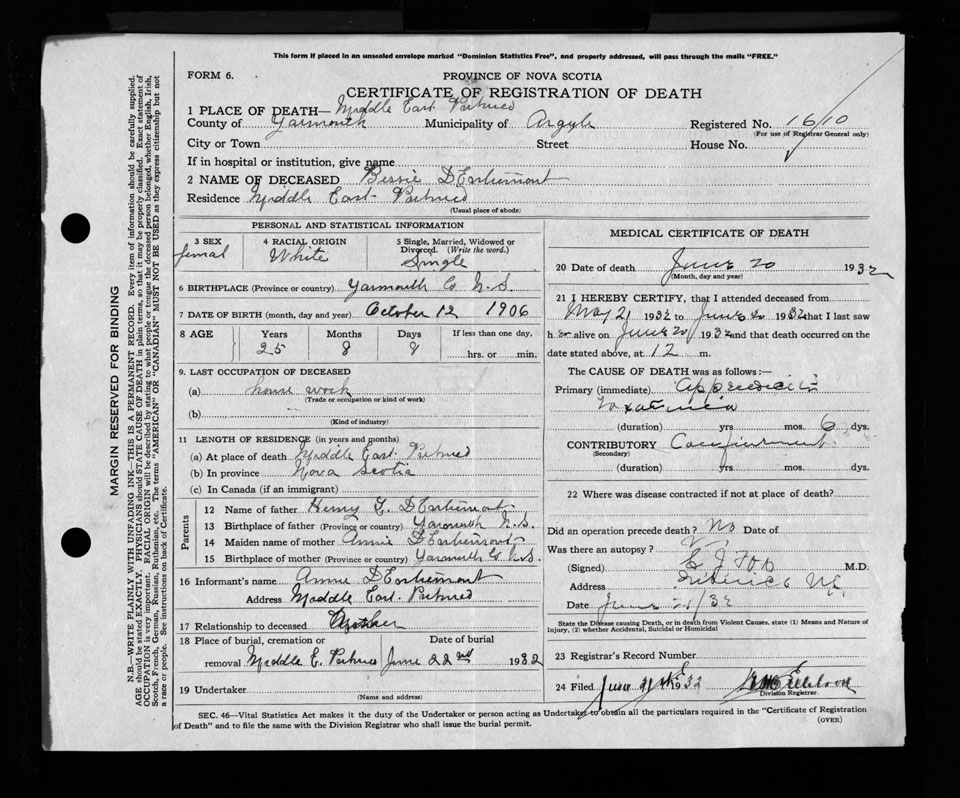 This form if placed in an unsealed envelope marked "Dominion Statistics Free", and properly addressed, will pass through the mails "FREE."
FORM 6.
PROVINCE OF NOVA SCOTIA
CERTIFICATE OF REGISTRATION OF DEATH
1 PLACE OF DEATH— Middle East Pubnico
County of Yarmouth Municipality of Argyle Registered No. 1610
(For use of Registrar General only)
City or Town Street House No.
If in hospital or institution, give name
2 NAME OF DECEASED Bessie D'Entremont
Residence Middle East Pubnico
(Usual place of abode)
PERSONAL AND STATISTICAL INFORMATION
3 SEX 4 RACIAL ORIGIN 5 Single, Married, Widowed or Divorced. (Write the word.)
femal White Single
6 BIRTHPLACE (Province or country) Yarmouth Co N.S.
7 DATE OF BIRTH (month, day and year) October 12 1906
8 AGE Years Months Days If less than one day,
25 8 8 hrs. or min.
9. LAST OCCUPATION OF DECEASED
(a) house work
(Trade or occupation or kind of work)
(b)
(Kind of industry)
11 LENGTH OF RESIDENCE (in years and months)
(a) At place of death Middle East Pubnico
(b) In province Nova Scotia
(c) In Canada (if an immigrant)
Parents
12 Name of father Henry D'Entremont
13 Birthplace of father (Province or country) Yarmouth N.S.
14 Maiden name of mother Annie D'Entremont
15 Birthplace of mother (Province or country) Yarmouth Co N.S.
16 Informant's name Annie D'Entremont
Address Middle East Pubnico
17 Relationship to deceased Mother
18 Place of burial, cremation or removal Date of burial
Middle E. Pubnico June 22nd 1932
19 Undertaker
(Name and address)
MEDICAL CERTIFICATE OF DEATH
20 Date of death June 20 1932
(Month, day and year)
21 I HEREBY CERTIFY, that I attended deceased from
May 21 1932 to June 20 1932 that I last saw
her alive on June 20 1932 and that death occurred on the
date stated above, at 12 m.
The CAUSE OF DEATH was as follows:—
Primary (immediate) Appendicitis
(duration) yrs. mos. 6 dys.
CONTRIBUTORY Confinement
(Secondary)
(duration) yrs mos. dys.
22 Where was disease contracted if not at place of death?
Did an operation precede death? No Date of
Was there an autopsy?
(Signed) M.D.
Address
Date June 21/32
State the Disease causing Death, or in death from Violent Causes, state (1) Means and Nature of
Injury, (2) whether Accidental, Suicidal or Homicidal
23 Registrar's Record Number
24 Filed June 1932
Division Registrar.
SEC. 46—Vital Statistics Act makes it the duty of the Undertaker or person acting as Undertaker to obtain all the particulars required in the "Certificate of Registration
of Death" and to file the same with the Division Registrar who shall issue the burial permit.
(OVER)
MARGIN RESERVED FOR BINDING
N.B.—WRITE PLAINLY WITH UNFADING INK—THIS IS A PERMANENT RECORD. Every item of information should be carefully supplied.
AGE should be stated EXACTLY. PHYSICIANS should STATE CAUSE OF DEATH in plain terms, so that it may be properly classified. Exact statement of
OCCUPATION is very important. RACIAL ORIGIN will be described by stating to what people or tongue the deceased person belonged, whether English, Irish,
Scotch, French, German, Russian, Ruthenian, etc. The terms "AMERICAN" OR "CANADIAN" MUST NOT BE USED as they express citizenship but not
a race or people. See instructions on back of Certificate.